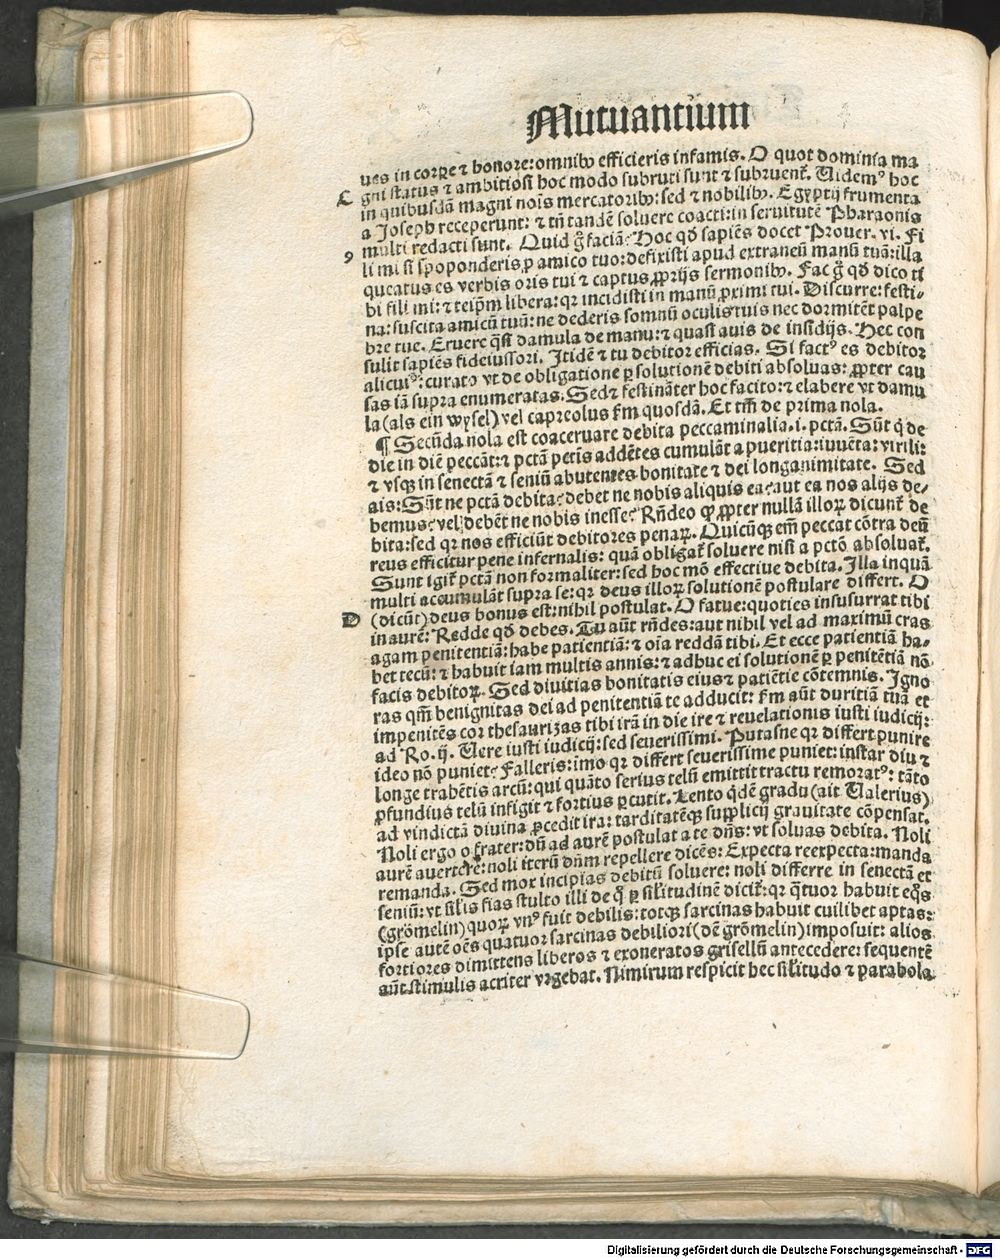 Mutuantium
ues in corpe ⁊ honore: omnibꝰ efficieris infamis. O quot dominia ma
C
gni status ⁊ ambitiosi hoc modo subruti sunt ⁊ subruent̄. Uidemꝰ hoc
in quibusdā magni nois mercatoribꝰ: sed ⁊ nobilibꝰ. Egyptij frumenta
a Joseph receperunt: ⁊ tn̄ tandē soluere coacti: in seruitutē Pharaonis
multi redacti sunt. Quid g̊ faciā? Hoc qđ sapiēs docet Prouer. vi. Fi
ꝯ
li mi si spoponderis ꝓ amico tuo: defixisti apud extraneū manū tuā: illa
queatus es verbis oris tui ⁊ captus ꝓprijs sermonibꝰ. Fac g̊ qđ dico ti
bi fili mi: ⁊ teip̄m libera: qr incidisti in manū ꝓximi tui. Discurre: festi-
na: suscita amicū tuū: ne dederis somnū oculis tuis nec dormitēt palpe
bre tue. Eruere q̄si damula de manu: ⁊ quasi auis de insidijs. Hec con
sulit sapiēs fideiussori. Itidē ⁊ tu debitor efficias. Si factꝰ es debitor
alicuiꝰ: curato vt de obligatione ꝑ solutionē debiti absoluas: ꝓpter cau
sas iā supra enumeratas. Sed⁊ festināter hoc facito: ⁊ elabere vt damu
la (als ein wysel) vel capreolus ẜm quosdā. Et tm̄ de prima nola.
¶ Secūda nola est coaceruare debita peccaminalia .i. pctā. Sūt q̇ de
die in diē peccāt: ⁊ pctā pctis addētes cumulāt a pueritia: iuuēta: virili:
⁊ vsqꝫ in senectā ⁊ seniū abutentes bonitate ⁊ dei longanimitate. Sed
ais: Sūt ne pctā debita? debet ne nobis aliquis ea? aut ea nos alijs de-
bemus? vel debēt ne nobis inesse? Rn̄deo qꝙ ꝓpter nullā illoꝝ dicunt̄ de
bita: sed qr nos efficiūt debitores penaꝝ. Quicūqꝫ em̄ peccat cōtra deū
reus efficitur pene infernalis: quā obligat̄ soluere nisi a pctō absoluat̄.
Sunt igit̄ pctā non formaliter: sed hoc mō effectiue debita. Illa inquā
multi accumulāt supra se: qr deus illoꝝ solutionē postulare differt. O
D
(dicūt) deus bonus est: nihil postulat. O fatue: quoties insusurrat tibi
in aurē: Redde qđ debes. Tu aūt rn̄des: aut nihil vel ad maximū cras
agam penitentiā: habe patientiā: ⁊ oīa reddā tibi. Et ecce patientiā ha-
bet tecū: ⁊ habuit iam multis annis: ⁊ adhuc ei solutionē ꝑ penitētiā nō
facis debitoꝝ. Sed diuitias bonitatis eius⁊ patiētie cōtemnis. Igno
ras qm̄ benignitas dei ad penitentiā te adducit: ẜm aūt duritiā tuā et
impenitēs cor thesaurizas tibi irā in die ire ⁊ reuelationis iusti iudicij:
ad Ro. ij. Uere iusti iudicij: sed seuerissimi. Putasne qr differt punire
ideo nō puniet? Falleris: imo qr differt seuerissime puniet: instar diu ⁊
longe trahētis arcū: qui quāto serius telū emittit tractu remoratꝰ: tāto
ꝓfundius telū infigit ⁊ fortius ꝑcutit. Lento qđē gradu (ait Ualerius)
ad vindictā diuina ꝓcedit ira: tarditatēqꝫ supplicij grauitate cōpensat.
Noli ergo o frater: dū ad aurē postulat a te dn̄s: vt soluas debita. Noli
aurē auertere: noli iterū dn̄m repellere dicēs: Expecta reexpecta: manda
remanda. Sed mox incipias debitū soluere: noli differre in senectā et
seniū: vt sil̄is fias stulto illi de q̊ ꝑ sil̄itudinē dicit̄: qr q̄tuor habuit eq̊s
(grōmelin) quoꝝ vnꝰ fuit debilis: totqꝫ sarcinas habuit cuilibet aptas:
ipse autē oēs quatuor sarcinas debiliori (dē grōmelin) imposuit: alios
fortiores dimittens liberos ⁊ exoneratos grisellū antecedere: sequentē
aūt stimulis acriter vrgebat. Nimirum respicit hec sil̄itudo ⁊ parabola
Digitalisierung gefördert durch die Deutsche Forschungsgemeinschaft - DFG